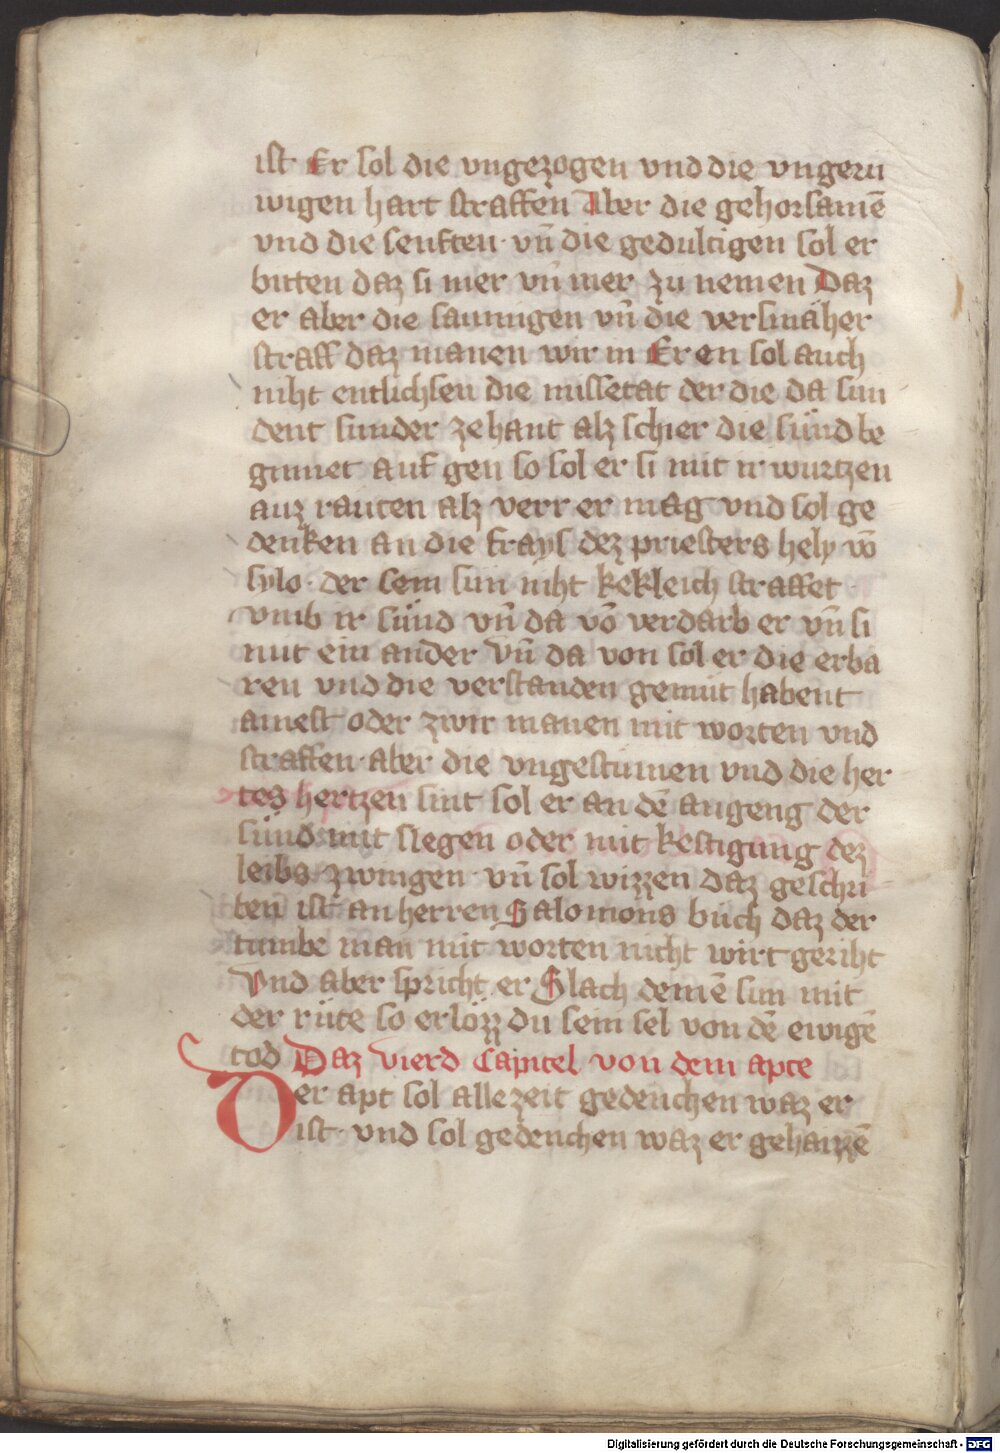 ist Er sol die vngezogen vnd die vngeru
wigen hart straffen Aber die gehorsamē
vnd die senften · vn̄ die gedultigen sol er
bitten daz si mer vn̄ mer zu nemen Daz
er aber die saumigen vn̄ die versmäher
straff daz manen wir in Er en sol auch
niht entlichsen die missetat der die da sun
dent sunder zehant alz schier die sünd be
ginnet auf gen so sol er si mit ir wurtzen
auz rauten alz verr er mag vnd sol ge
denken an die frayſ dez priesters hely vō
sylo · der sein sun niht kekleich straffet ·
vmb ir sünd vn̄ da vō verdarb er vn̄ si
mit ein ander Vn̄ da von sol er die erba
ren vnd die verstanden gemüt habent
ainest oder zwir manen mit worten vnd
straffen · aber die vngestumen vnd die her
tes hertzen sint sol er an dē angeng der
sünd mit slegen oder mit kestigung dez
leibs · zwingen · vn̄ sol wizzen daz geschri
ben ist an herren Salomons buch daz der
tumbe man mit worten nicht wirt geriht
Vnd aber spricht er Slach deinē sun mit
der rüte so erlözz du sein sel von dē ewigē
tod Daz vierd Capitel von dem apte
Der apt sol alle zeit gedenchen waz er
ist · vnd sol gedenchen waz er gehaizzē
Digitalisierung gefördert durch die Deutsche Forschungsgemeinschaft - DFG